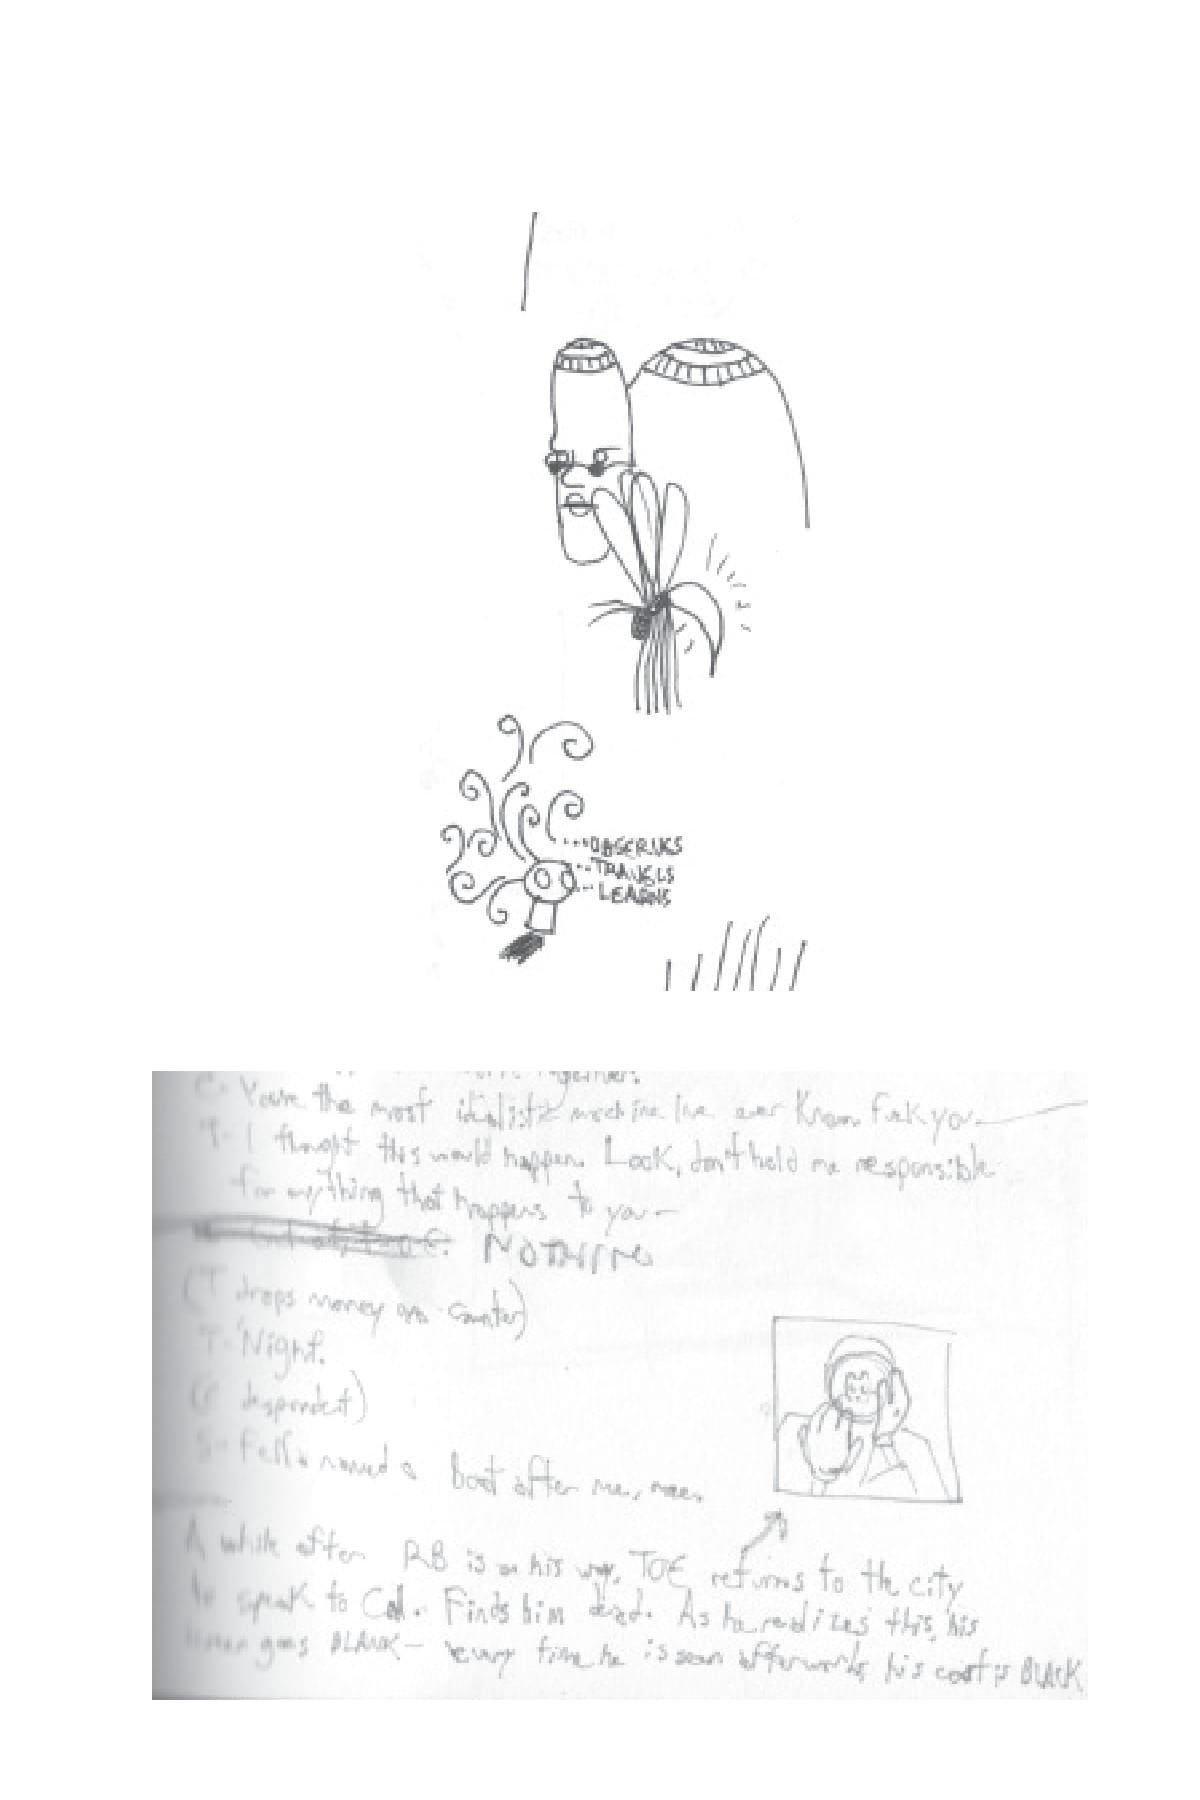 OBSERVES
TRAVELS
LEARNS
together.
C- You're the most idealistic machine I've ever known. Fuk you—
T- I thought this would happen. Look, don't hold me responsible
for anything that happens to you—
NOTHING
(T drops money on counter)
T- 'Night.
(C despondent)
S- Fella named a boat after me, once.
A while after RB is on his way, TOE returns to the city
to speak to Cal. Finds him dead. As he realizes this, his
goes BLANK— every time he is seen afterwards, his coat is BLACK